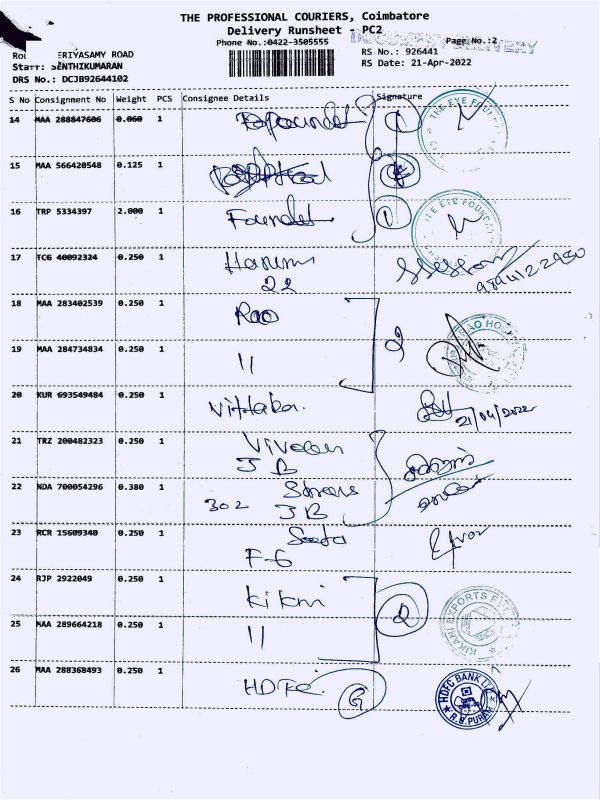 THE PROFESSIONAL COURIERS, Coimbatore
Delivery Runsheet - PC2
Phone No.:0422-3505555
DOCUMENT DELIVERY
Page No.:2
RS No.: 926441
RS Date: 21-Apr-2022
ERIYASAMY ROAD
Staff: SENTHIKUMARAN
DRS No.: DCJB92644102
S No Consignment No Weight PCS Consignee Details Signature
14 MAA 288847606 0.060 1 THE EYE FOUN
15 MAA 566420548 0.125 1
16 TRP 5334397 2.000 1 THE EYE FOUN
17 TCG 40092324 0.250 1
22
18 MAA 283402539 0.250 1 Rao
19 MAA 284734834 0.250 1 11 2 RAO HO
20 KUR 693549484 0.250 1 Vittaka. 21/04/2022
21 TRZ 200482323 0.250 1
J B
22 NDA 700054296 0.380 1
302 J B
23 RCR 15609340 0.250 1
F-6
24 RJP 2922049 0.250 1 Kikani 2
25 MAA 289664218 0.250 1 11 KIKANI EXPORTS
26 MAA 288368493 0.250 1 HDFC HDFC BANK LTD R.S.PURAM